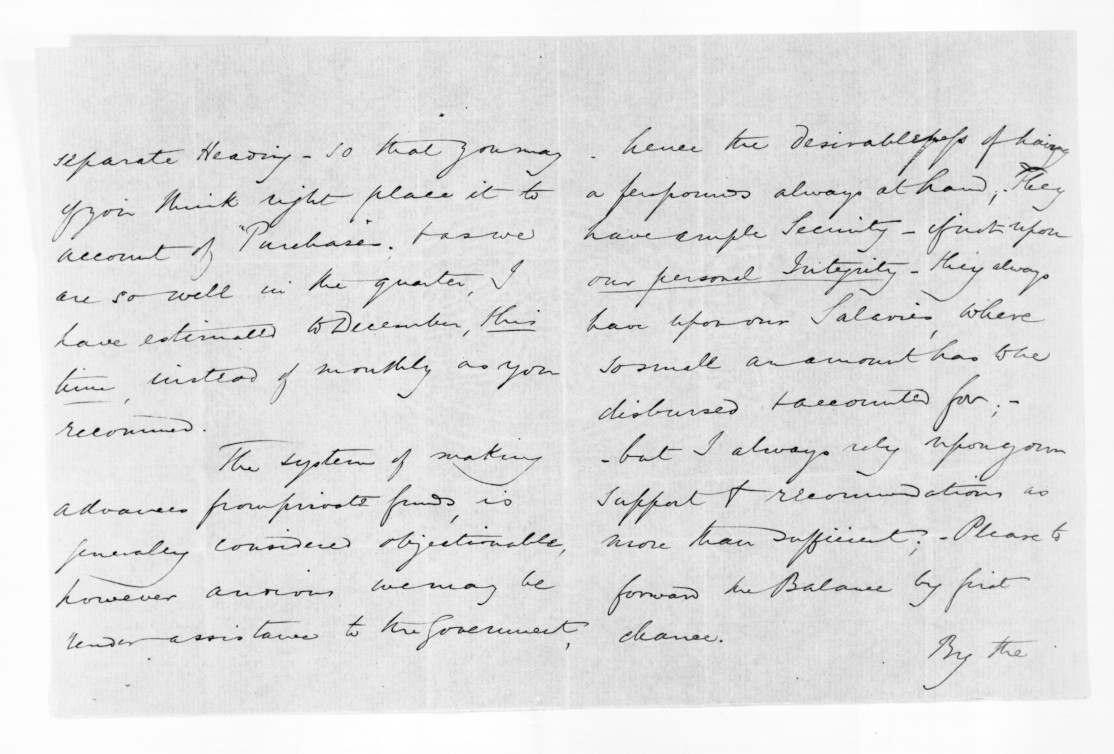 separate Heading - so that you may
if you think right place it to
account of "Purchases". + as we
are so well in the quarter, I
have estimated to December, this
time, instead of monthly as you
recommend.
The system of making
advances from private funds, is
generally considered objectionable,
however anxious we may be
render assistance to the Government,
- hence the desirableness of having
a few pounds always at hand; They
have ample Security - if not upon
our personal Integrity - they always
have upon our Salaries, where
so small an amount has to be
disbursed + accounted for; -
- but I always rely upon your
support + recommendations as
more than sufficient; - Please to
forward the Balance by first
chance.
By the